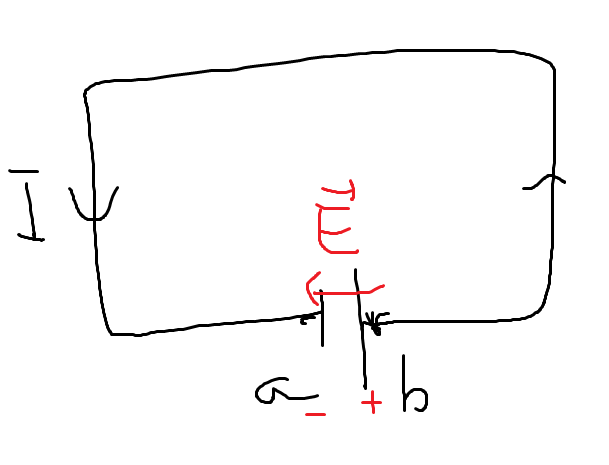 I
E
a - + b